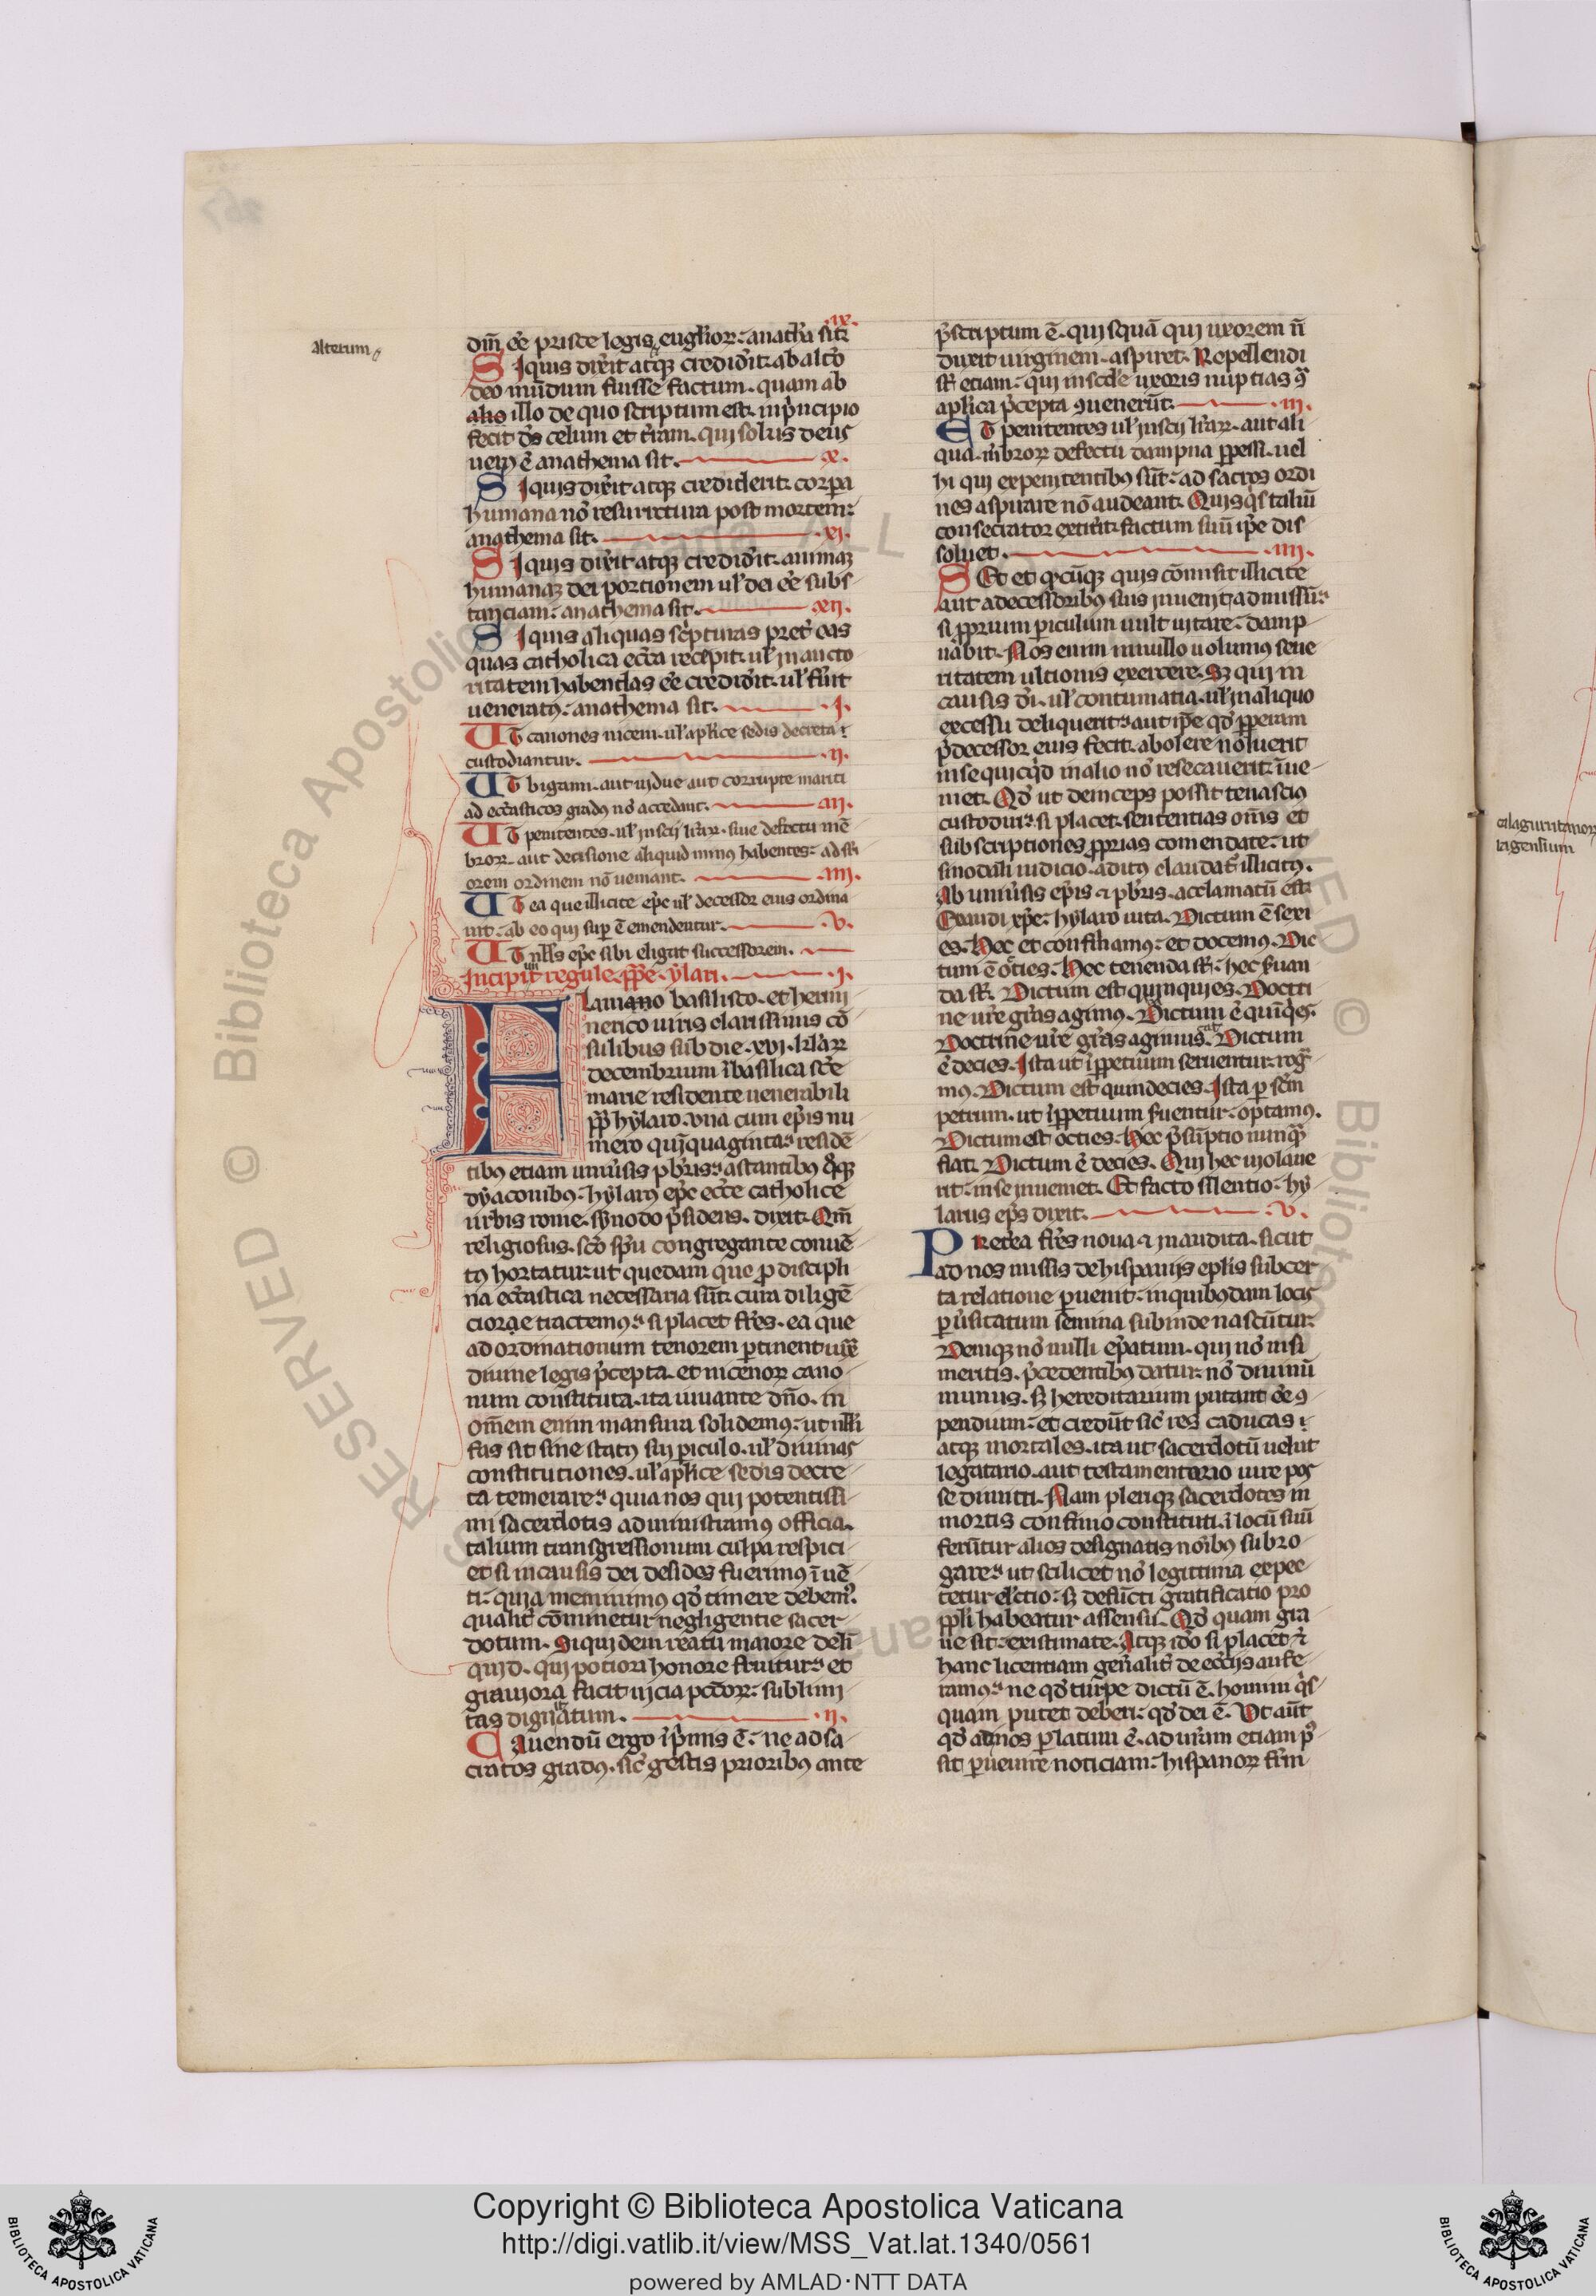 alterum
.ix.
dm̄ eē prisce legis, euglior: anath̄a sit
Siquis dixerit atq; crediderit ab alto
deo mundum fuisse factum. quam ab
alio illo de quo scriptum est. in pͥncipio
fecit ds celum et terram. qui solus deus
uerꝰ ē anathema sit. .x.
Siquis dixerit atq; crediderit corpa
humana nō resurrectura post mortem:
anathema sit. .xi.
Siquis dixerit atq; crediderit. animaꝫ
humanaꝫ dei portionem ul' dei eē subs
tanciam: anathema sit. .xii.
Siquis aliquas scripturas preter eas
quas catholica eccla recepit. ul' in aucto
ritatem habendas eē crediderit. ul' fuerit
ueneratꝰ: anathema sit. .i.
UT canones niceni. ul' aplice sedis decreta
custodiantur. .ii.
UT bigami. aut uidue aut corrupte mariti
ad ecclasticos gradꝰ nō accedant. .iii.
UT penitentes. ul' inscii lrarꝝ. siue defectu mē
brorꝝ. aut decisione aliquid minꝰ habentes: ad
orem ordinem nō ueniant. .iiii.
UT ea que illicite epc ul' decessor eius ordina
uit: ab eo qui sup ē emendentur. .v.
UT nlls epc sibi eligat successorem.
Incipiūt regule. pp̄e. ylari. .i.
Flauiano basilisco. et hermi
nerico uiris clarissimis cō
sulibus sub die. xvi. klarꝝ
decembrium ī basilica scē
marie residente uenerabili
pp̄ hylaro. una cum ep̄is nu
mero quīquaginta: residē
tibꝰ etiam uniuersis pbris: astantibꝰ qͦq;
dyaconibꝰ: hylarꝰ epc ecce catholice
urbis rome. synodo p̄sidens. dixit. Qm̄
religiosus. sco spu congregante conuē
tꝰ hortatur: ut quedam que ꝓ discipli
na ecclastica necessaria sūt: cura diligē
ciore tractemꝰ: si placet fres. ea que
ad ordinationum tenorem ptinent iux̄
diuine legis p̄cepta. et nicenorꝝ cano
num constituta. ita iuuante dno. in
omēm euum mansura solidemꝰ: ut nlli
fas sit sine statꝰ sui piculo. ul' diuinas
constitutiones. ul' aplice sedis decre
ta temerare: quia nos qui potentissi
mi sacerdotis administramꝰ officia.
talium transgressionum culpa respici
et si in causis dei desides fuerimꝰ īuē
ti: quia meminimꝰ qd̄ timere debemꝰ.
qualiter cōminetur negligentie sacer
dotum. Siquidem reatu maiore deli
quid. qui potiori honore fruitur: et
grauiora facit uicia pctorꝝ: sublimi
tas dignitatum. .ii.
Cauendū ergo īpͥmis ē: ne ad sa
cratos gradꝰ. sic gestis prioribꝰ ante
p̄scriptum ē. quisquā qui uxorem n̄
duxit uirginem. aspiret. Repellendi
st etiam: qui in scd'e uxoris nuptias ꝯͣ
aplica p̄cepta ꝯuenerūt. .iii.
ET penitentes ul' inscii lrarꝝ. aut ali
qua. mbrorꝝ defectu dampna ppessi. uel
hi qui expenitentibꝰ sūt: ad sacros ordi
nes aspirare nō audeant. Quisqͥs taliū
consecrator extiterit: factum suū ipē dis
soluet. .iiii.
SEt et qͦcūq; quis cōmisit illicite
aut a decessoribꝰ suis inuenit admissū:
si ꝓprium piculum uult uitare: damp
nabit. Nos enim in nullo uolumꝰ seue
ritatem ultionis exercere. Sꝫ qui in
causis di. ul' contumatia. ul' in aliquo
excessu deliquerit: aut ipē qd̄ pperam
p̄decessor eius fecit. abolere noluerit
in se quicqͥd in alio nō resecauerit: īue
niet. Qd̄ ut deinceps possit tenacius
custodiri: si placet. sententias om̄s et
subscriptiones ꝓprias comendate: ut
sinodali iudicio. aditꝰ claudatur illicitꝰ.
Ab uniuersis epis ⁊ pbris. acclamatū est.
Exaudi xpe: hylaro uita. Dictum ē sexi
es. Hec et confirmamꝰ: et docemꝰ. Dic
tum ē octies. Hec tenenda st: hec seruan
da st. Dictum est quinquies. Doctri
ne ure gras agimꝰ. Dictum ē quīqͥes.
Doctrine ure gras agimus. Dictum
ē decies. Ista ut īppetuum seruentur: roga
mꝰ. Dictum est quindecies. Ista p scm
petrum. ut īppetuum seruentur: optamꝰ.
Dictum est octies. Hec p̄sūptio nunqͣ
fiat. Dictum ē decies. Qui hec uiolaue
rit: in se inueniet. Et facto silentio: hy
larus eps dixit. .v.
PReterea fres noua ⁊ inaudita. sicut
ad nos missis de hispaniis eplis sub cer
ta relatione puenit: in quibꝰdam locis
puersitatum semina subinde nascūtur.
Deniq; nō nulli epatum. qui nō nisi
meritis. p̄cedentibꝰ datur: nō diuinū
munus. sꝫ hereditarium putant eē ꝯ
pendium: et credūt sic res caducas
atq; mortales. ita ut sacerdotū uelut
legatario. aut testamentario iure pos
se dimitti. Nam pleriq; sacerdotes in
mortis confinio constituti. ī locū suū
ferūtur alios designatis noībꝰ subro
gare: ut scilicet nō legittima expec
tetur electio: sꝫ defūcti gratificatio pro
ppli habeatur assensu. Qd̄ quam gra
ue sit: existimate. Atq; ido si placet ⁊
hanc licentiam generaliter de ecciis aufe
ramꝰ: ne qd̄ turpe dictū ē. homini qͥs
quam putet deberi: qd̄ dei ē. Ut aūt
qd̄ ad nos platum ē. ad uram etiam pͦ
sit puenire noticiam: hispanorꝝ frm
calaguritanorꝝ
Copyright © Biblioteca Apostolica Vaticana
http://digi.vatlib.it/view/MSS_Vat.lat.1340/0561
powered by AMLAD·NTT DATA
BIBLIOTECA APOSTOLICA VATICANA
BIBLIOTECA APOSTOLICA VATICANA